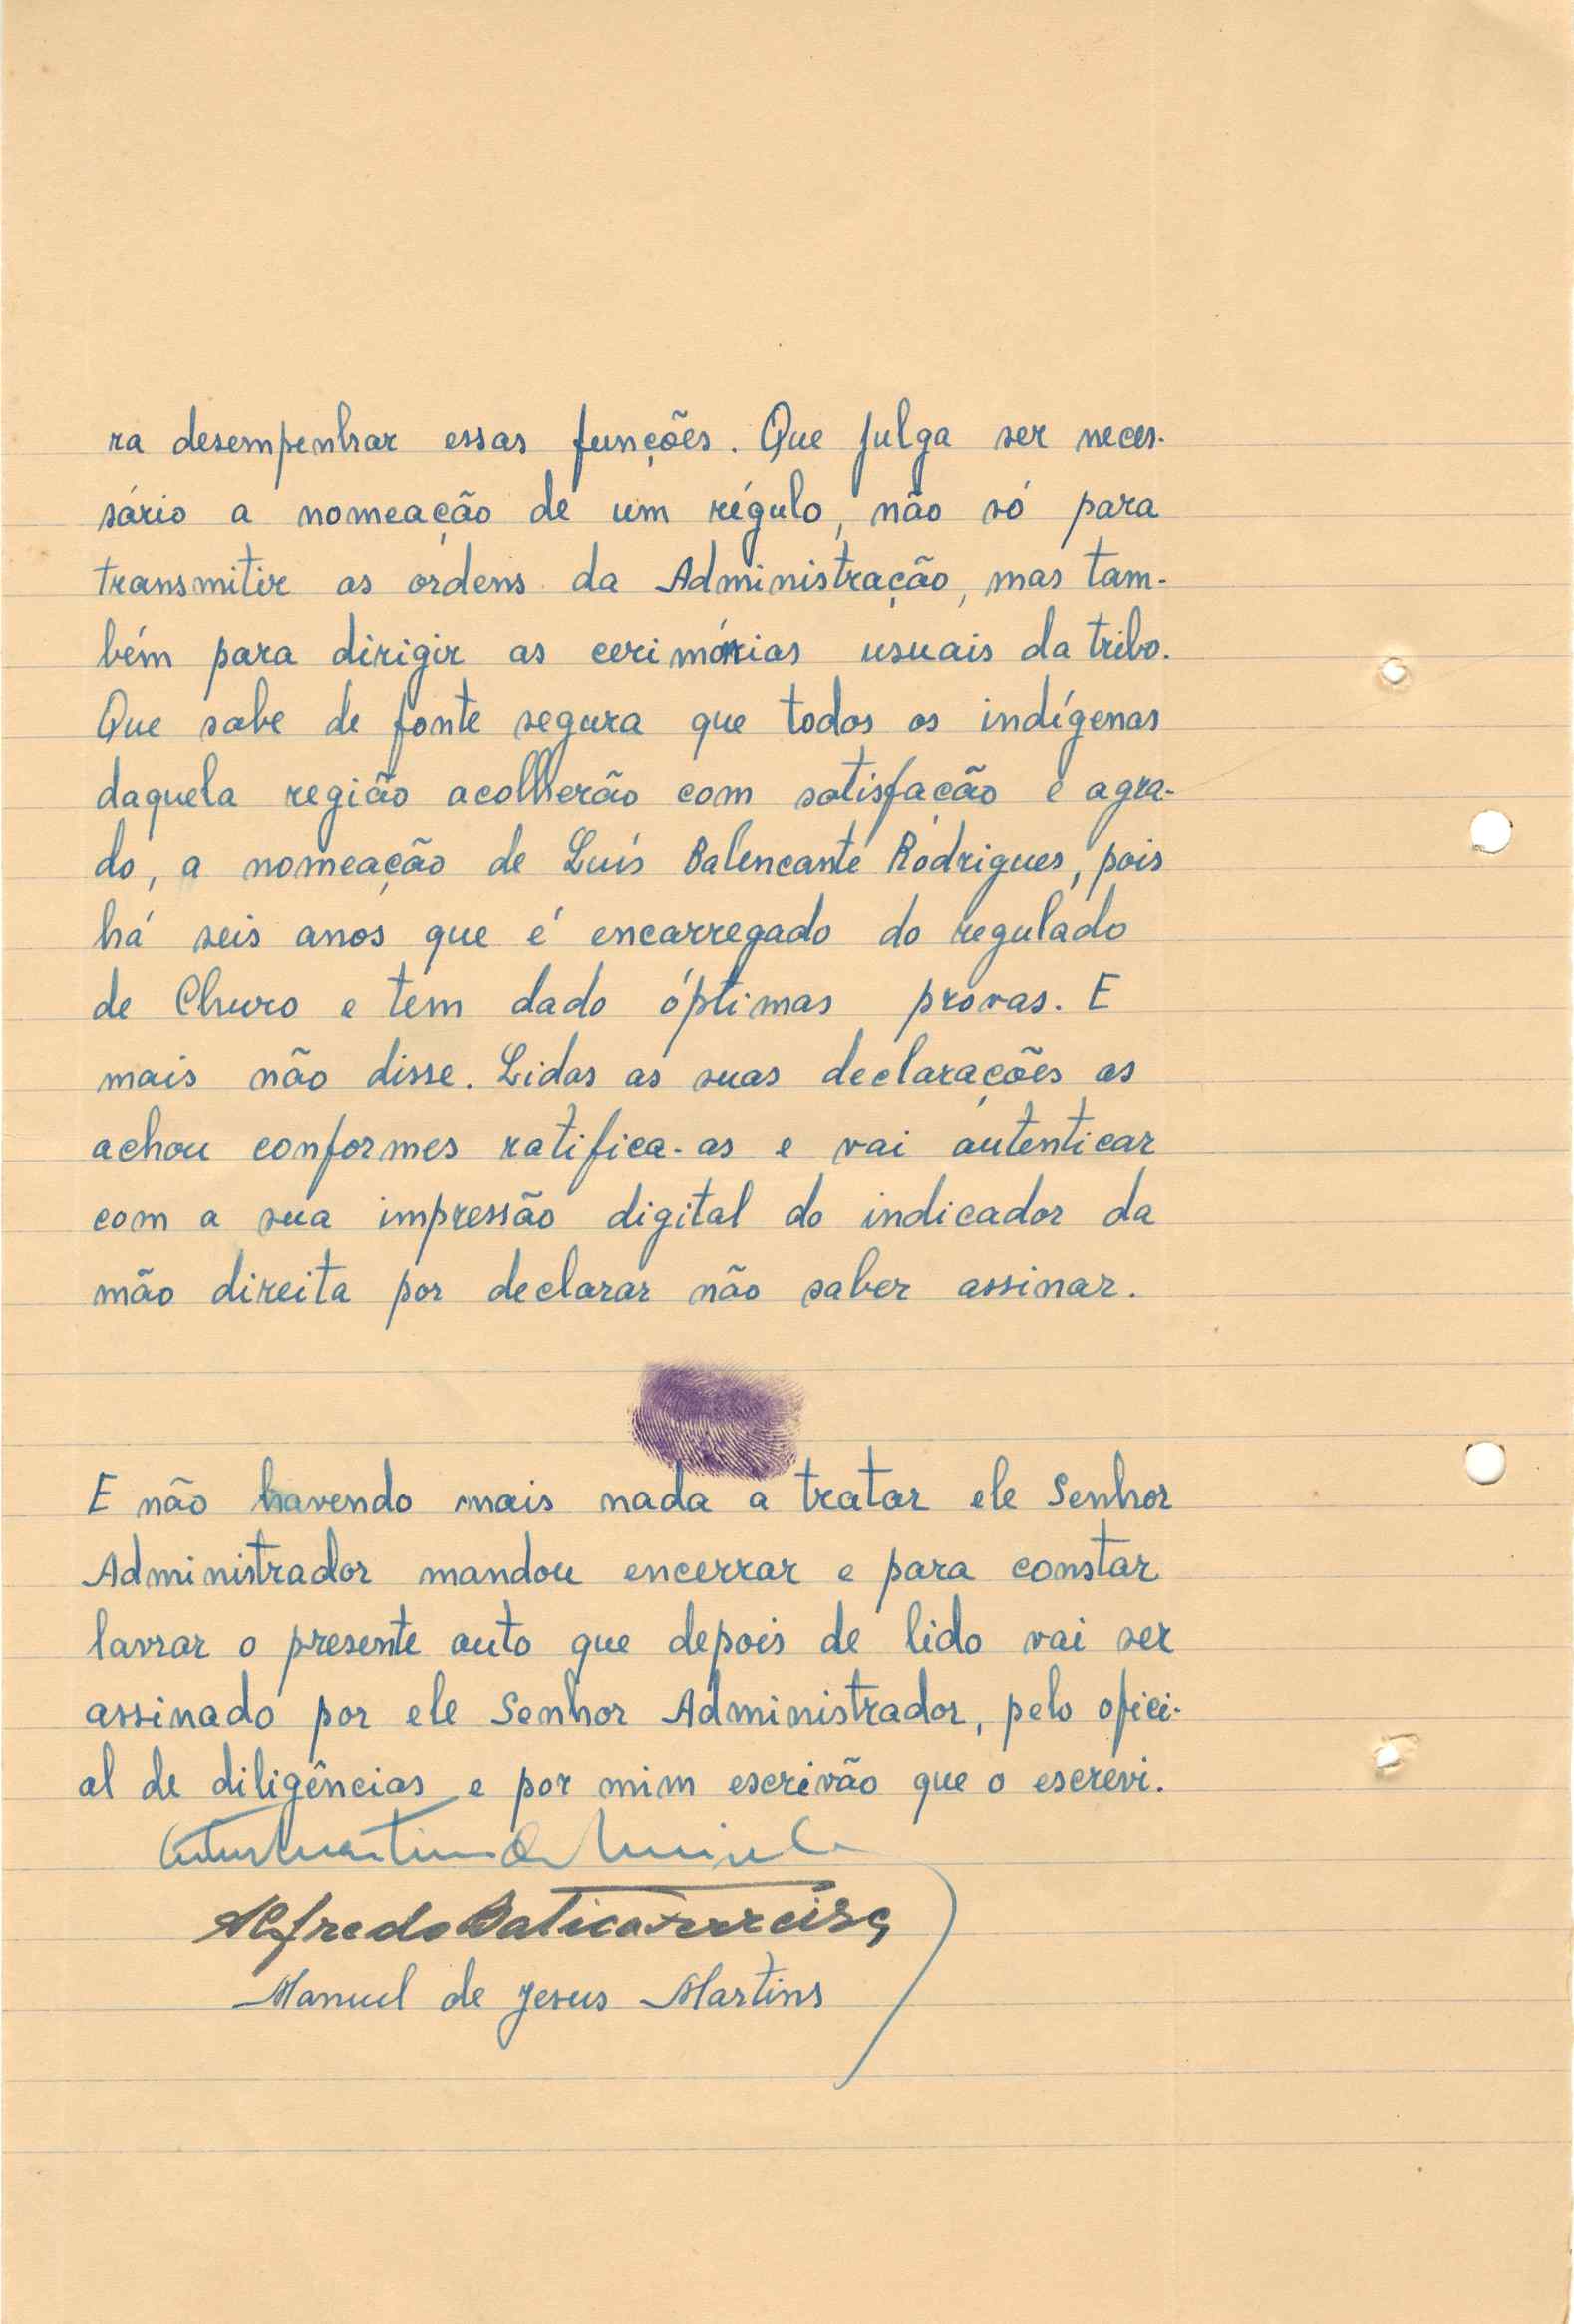 ra desempenhar essas funções. Que julga ser neces-
sário a nomeação de um régulo, não só para
transmitir as ordens da Administração, mas tam-
bém para dirigir as cerimónias usuais da tribo.
Que sabe de fonte segura que todos os indígenas
daquela região acolherão com satisfação e agra-
do, a nomeação de Luís Balencante Rodrigues, pois
há seis anos que é encarregado do regulado
de Churo e tem dado óptimas provas. E
mais não disse. Lidas as suas declarações as
achou conformes ratifica-as e vai autenticar
com a sua impressão digital do indicador da
mão direita por declarar não saber assinar.
E não havendo mais nada a tratar ele Senhor
Administrador mandou encerrar e para constar
lavrar o presente auto que depois de lido vai ser
assinado por ele Senhor Administrador, pelo ofici-
al de diligências e por mim escrivão que o escrevi.
Alfredo Batica Ferreira
Manuel de Jesus Martins